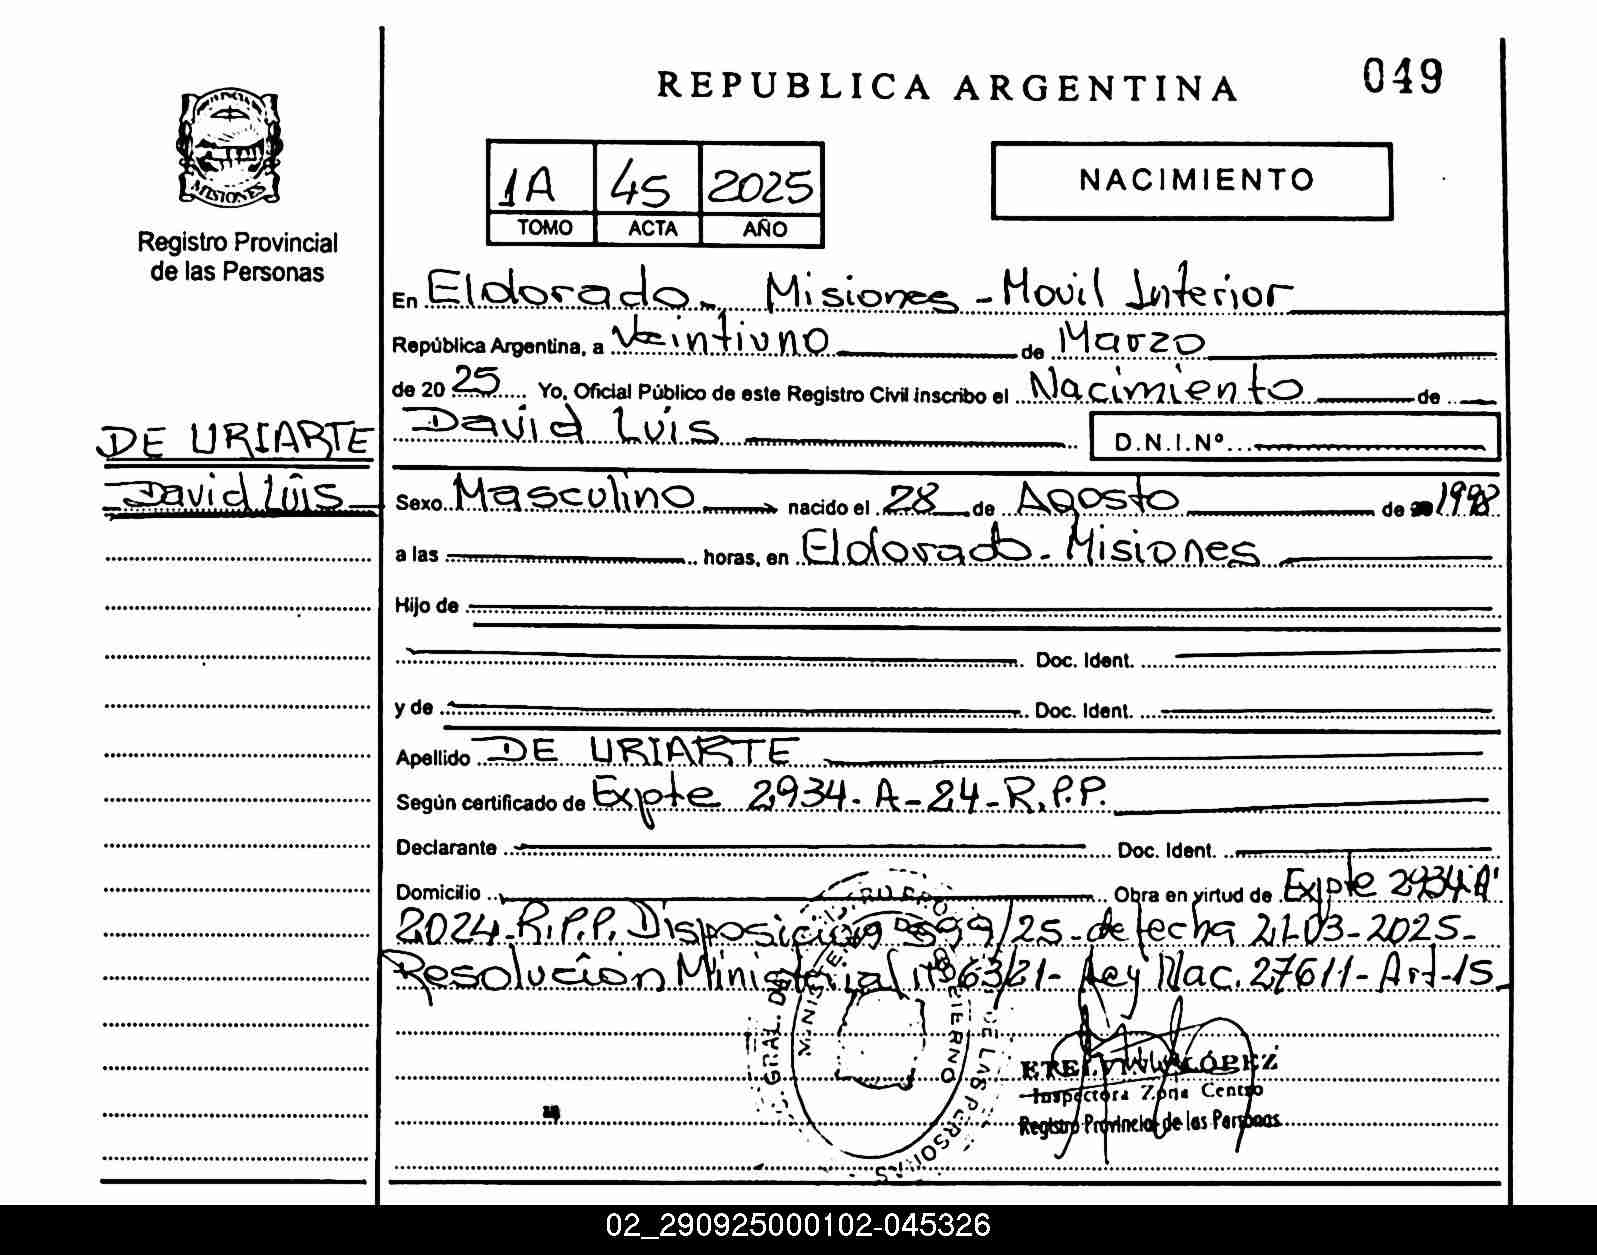 REPUBLICA ARGENTINA
049
MISIONES
Registro Provincial
de las Personas
1A 45 2025
TOMO ACTA AÑO
NACIMIENTO
En Eldorado - Misiones - Movil Interior
República Argentina, a Veintiuno de Marzo
de 20 25 Yo, Oficial Público de este Registro Civil inscribo el Nacimiento de
David Luis D.N.I.Nº
DE URIARTE
David Luis
Sexo Masculino nacido el 28 de Agosto de 1998
a las horas, en Eldorado - Misiones
Hijo de
Doc. Ident.
y de Doc. Ident.
Apellido DE URIARTE
Según certificado de Expte 2934-A-24-R.P.P.
Declarante Doc. Ident.
Domicilio Obra en virtud de Expte 2934'A'
2024-R.P.P. Disposición 599/25 - de fecha 21-03-2025-
Resolución Ministerial Nº 63/21- Ley Nac. 27611- Art-15
GRAL. DE LAS PERSONAS
MINISTERIO DE GOBIERNO
LÓPEZ
Inspectora Zona Centro
Registro Provincial de las Personas
02_290925000102-045326